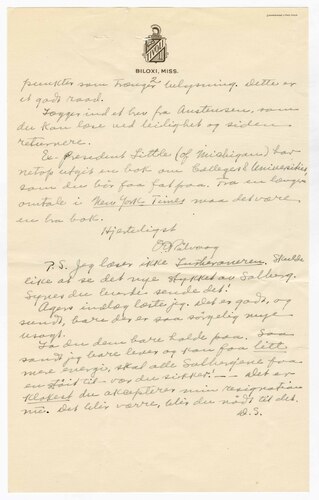 BILOXI, MISS.
2
punkter som trænger belysning. Dette er
et godt raad.
Lægger ind et brev fra Austensen, som
du kan læse ved leilighet og siden
returnere.
Ex-president Little (of Michigan) har
netop utgit en bok om Colleges & Universities
som du bør faa fat paa. Fra en længre
omtale i New York Times maa det være
en bra bok.
Hjerteligst
P.S. Jeg læser ikke Lutheraneren. Skulde
like at se det nye stykket av Solberg.
Synes du burde sende det!
Agers indlæg læste jeg. Det er godt, og
sundt, bare der er saa sørgelig mye
usagt.
Ja du dem bare holde paa. Saa
sandt jeg bare lever og kan faa litt
mere energi, skal alle Solbergene faa
en støit til - vær du sikker! — Det er
klokest du aksepterer min resignation
nu. Det blir værre, blir du nødt til det.
O.S.